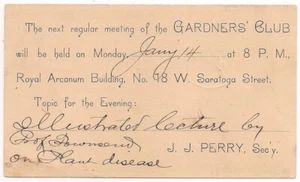 The next regular meeting of the GARDNERS' CLUB
will be held on Monday, Jan'y 14 at 8 P. M.,
Royal Arcanum Building, No. 18 W. Saratoga Street.
Topic for the Evening:
Illustrated lecture by
Prof Townsend
on Plant disease
J. J. PERRY, Sec'y.